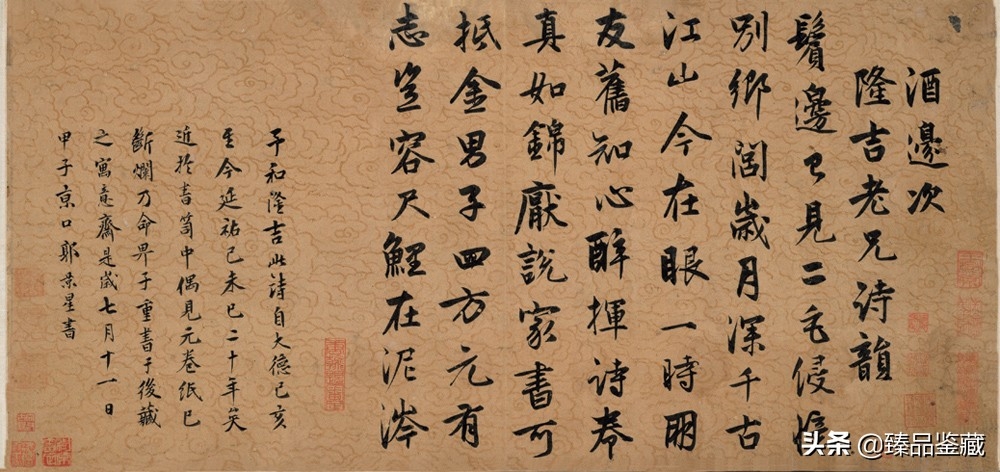 酒邊次
隆吉老兄詩韻
鬢邊已見二毛侵悵
別鄉閭歲月深千古
江山今在眼一時朋
友舊知心醉揮詩卷
真如錦厭說家書可
抵金男子四方元有
志豈容尺鯉在泥涔
予和隆吉此詩自大德己亥
至今延祐己未已二十年矣
近於書笥中偶見元卷紙已
斷爛乃命畀子重書于後藏
之寓意齋是歲七月十一日
甲子京口郭景星書
头条 @臻品鉴藏